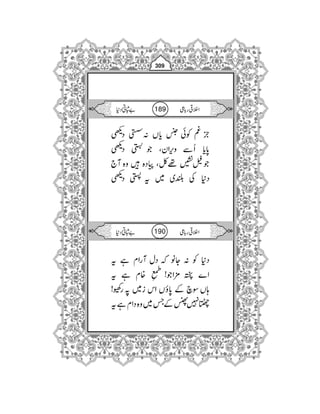 309
اخلاقی رباعی 189 بے ثباتیِ دنیا
جز غم کوئی جنس یاں نہ سستی دیکھی
پایا اُسے ویران، جو بستی دیکھی
جو فیل نشیں تھے کل، پیادہ ہیں وہ آج
دنیا کی بلندی میں یہ پستی دیکھی
اخلاقی رباعی 190 بے ثباتیِ دنیا
دنیا کو نہ جانو کہ دل آرام ہے یہ
اے پختہ مزاجو! طمعِ خام ہے یہ
ہاں سوچ کے پاؤں اس زمیں پہ رکھیو!
چھٹتا نہیں پھنس کے جس میں وہ دام ہے یہ